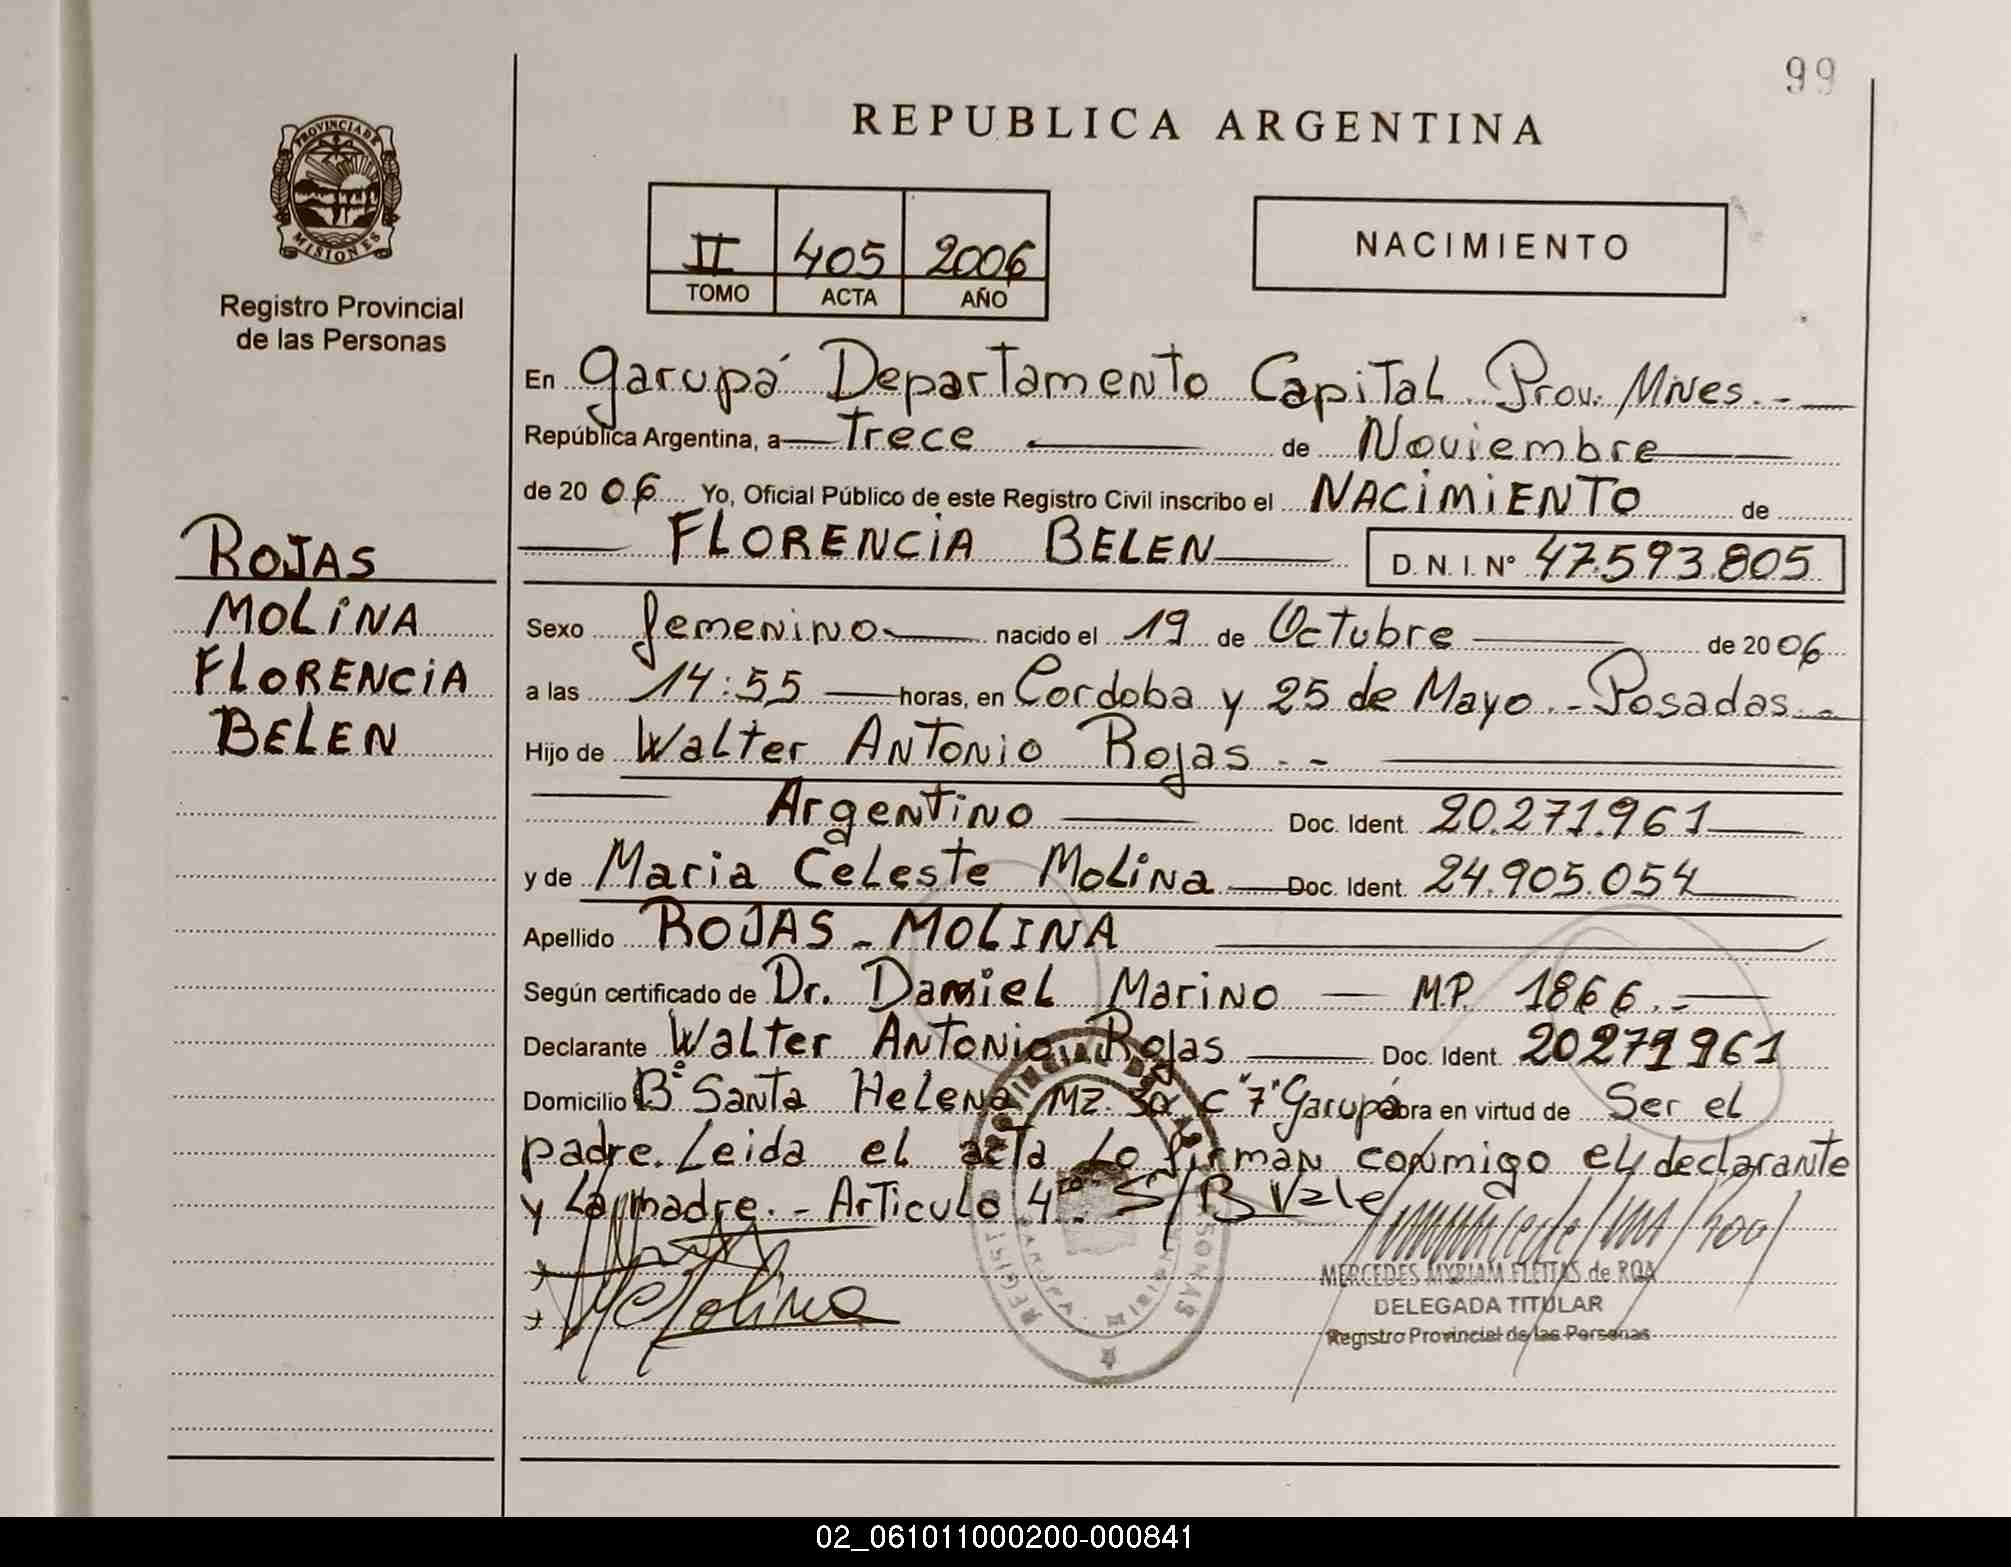 99
REPUBLICA ARGENTINA
PROVINCIA DE
MISIONES
Registro Provincial
de las Personas
II 405 2006
TOMO ACTA AÑO
NACIMIENTO
En Garupá Departamento Capital Prov. Mnes.-
República Argentina, a Trece de Noviembre
de 2006 Yo, Oficial Público de este Registro Civil inscribo el NACIMIENTO de
FLORENCIA BELEN D. N. I. N° 47.593.805
ROJAS
MOLINA
FLORENCIA
BELEN
Sexo femenino nacido el 19 de Octubre de 2006
a las 14:55 horas, en Cordoba y 25 de Mayo.- Posadas.-
Hijo de Walter Antonio Rojas.-
Argentino Doc. Ident. 20.271.961
y de Maria Celeste Molina Doc. Ident. 24.905.054
Apellido ROJAS - MOLINA
Según certificado de Dr. Daniel Marino — M.P. 1866.-
Declarante Walter Antonio Rojas Doc. Ident. 20271961
Domicilio B° Santa Helena Mz. C "7" Garupá obra en virtud de Ser el
padre. Leida el acta Lo firman conmigo el declarante
y La madre.- Articulo 4to S/B Vale
MERCEDES MYRIAM FLEITAS de ROA
DELEGADA TITULAR
Registro Provincial de las Personas
02_061011000200-000841